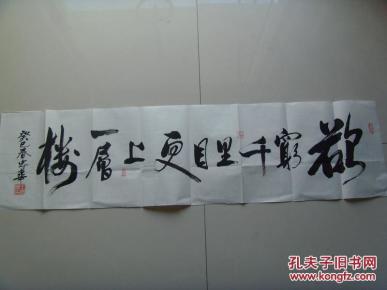 欲窮千里目更上一層樓
癸巳春
孔夫子旧书网